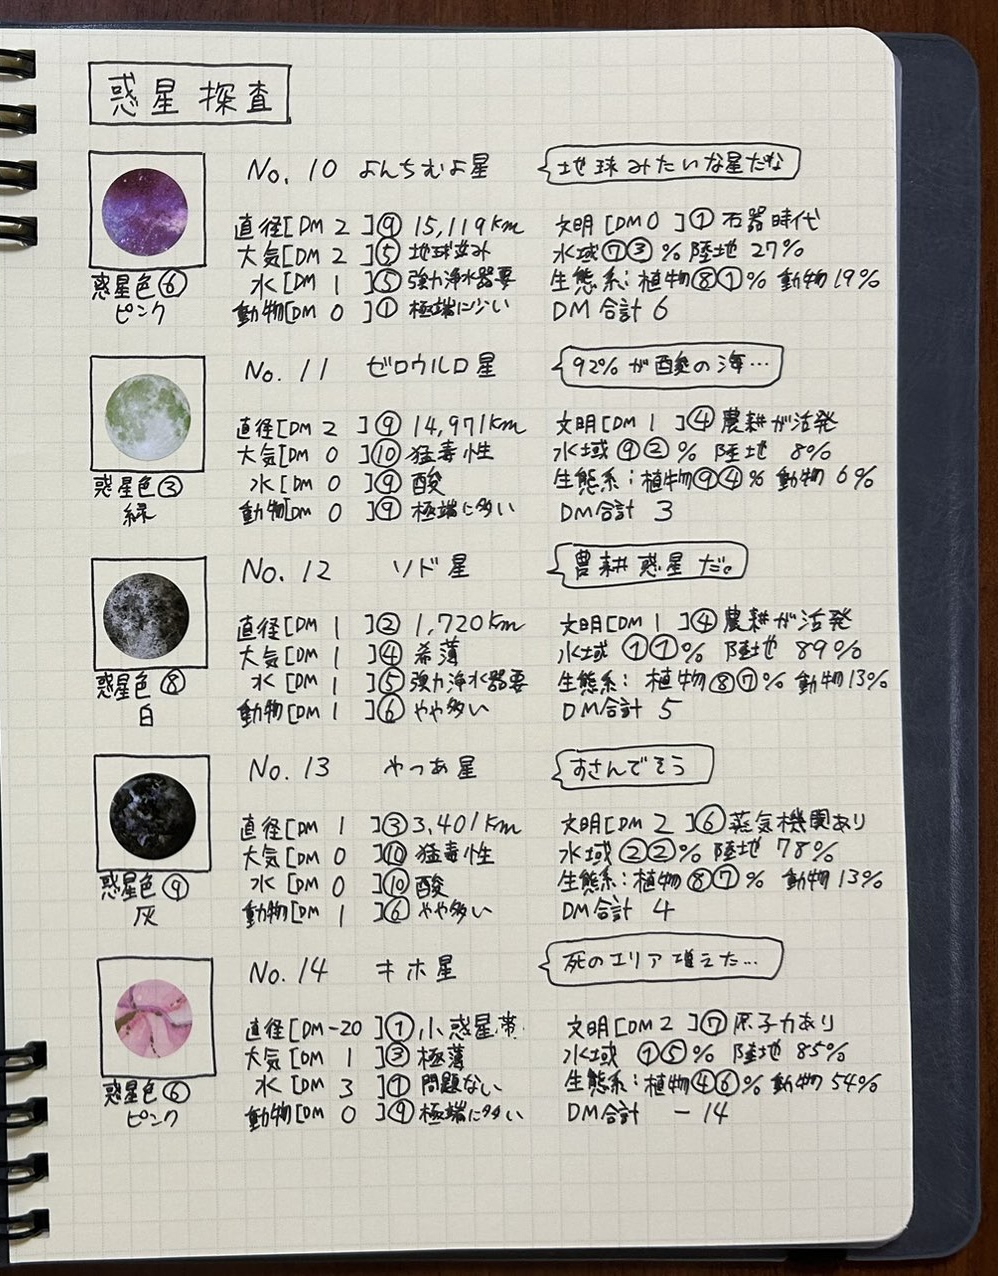 惑星探査
No. 10 よんちむよ星 地球みたいな星だな
直径[DM 2 ]⑨ 15,119km 文明[DM 0 ]① 石器時代
大気[DM 2 ]⑤ 地球並み 水域⑦③% 陸地 27%
水[DM 1 ]⑤ 強力浄水器要 生態系:植物⑧①% 動物19%
動物[DM 0 ]① 極端に少い DM合計 6
惑星色⑥
ピンク
No. 11 ゼロウルロ星 92%が酸の海…
直径[DM 2 ]⑨ 14,971km 文明[DM 1 ]④ 農耕が活発
大気[DM 0 ]⑩ 猛毒性 水域⑨②% 陸地 8%
水[DM 0 ]⑨ 酸 生態系:植物⑨④% 動物 6%
動物[DM 0 ]⑨ 極端に多い DM合計 3
惑星色③
緑
No. 12 ソド星 農耕惑星だ。
直径[DM 1 ]② 1,720km 文明[DM 1 ]④ 農耕が活発
大気[DM 1 ]④ 希薄 水域 ①①% 陸地 89%
水[DM 1 ]⑤ 強力浄水器要 生態系: 植物⑧⑦% 動物13%
動物[DM 1 ]⑥ やや多い DM合計 5
惑星色⑧
白
No. 13 やつあ星 すさんでそう
直径[DM 1 ]③ 3,401km 文明[DM 2 ]⑥ 蒸気機関あり
大気[DM 0 ]⑩ 猛毒性 水域②②% 陸地 78%
水[DM 0 ]⑩ 酸 生態系:植物⑧⑦% 動物13%
動物[DM 1 ]⑥ やや多い DM合計 4
惑星色⑨
灰
No. 14 キホ星 死のエリア増えた…
直径[DM-20 ]① 小惑星帯. 文明[DM 2 ]⑦ 原子力あり
大気[DM 1 ]③ 極薄 水域 ①⑤% 陸地 85%
水[DM 3 ]⑦ 問題ない 生態系:植物④⑥% 動物54%
動物[DM 0 ]⑨ 極端に多い DM合計 -14
惑星色⑥
ピンク